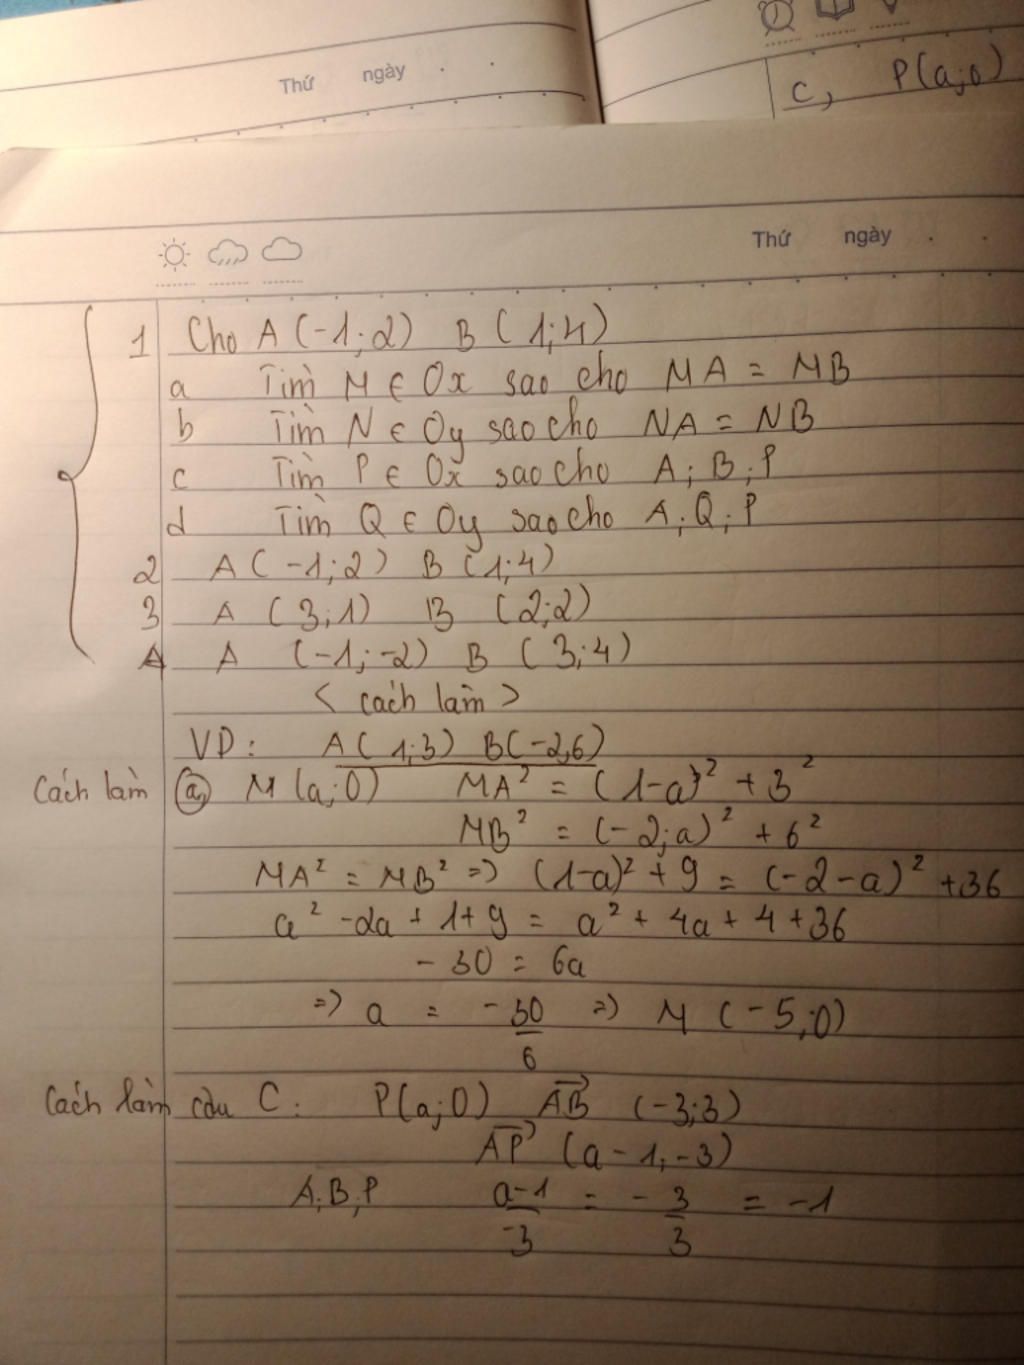 Thứ ngày
c, P(a;0)
Thứ ngày
1 Cho A (-1;2) B (1;4)
a Tìm M ∈ Ox sao cho MA = MB
b Tìm N ∈ Oy sao cho NA = NB
c Tìm P ∈ Ox sao cho A; B; P
d Tìm Q ∈ Oy sao cho A; Q; P
2 A (-1;2) B (1;4)
3 A (3;1) B (2;2)
4 A (-1;-2) B (3;4)
< cách làm >
VD: A(1;3) B(-2,6)
Cách làm a, M (a;0) MA² = (1-a)² + 3²
MB² = (-2;a)² + 6²
MA² = MB² => (1-a)² + 9 = (-2-a)² +36
a² -2a + 1+9 = a² + 4a + 4 +36
- 30 = 6a
=> a = -30/6 => M (-5;0)
Cách làm câu C: P(a;0) \overrightarrow{AB} (-3;3)
\overrightarrow{AP} (a-1;-3)
A;B;P a-1/-3 = -3/3 = -1